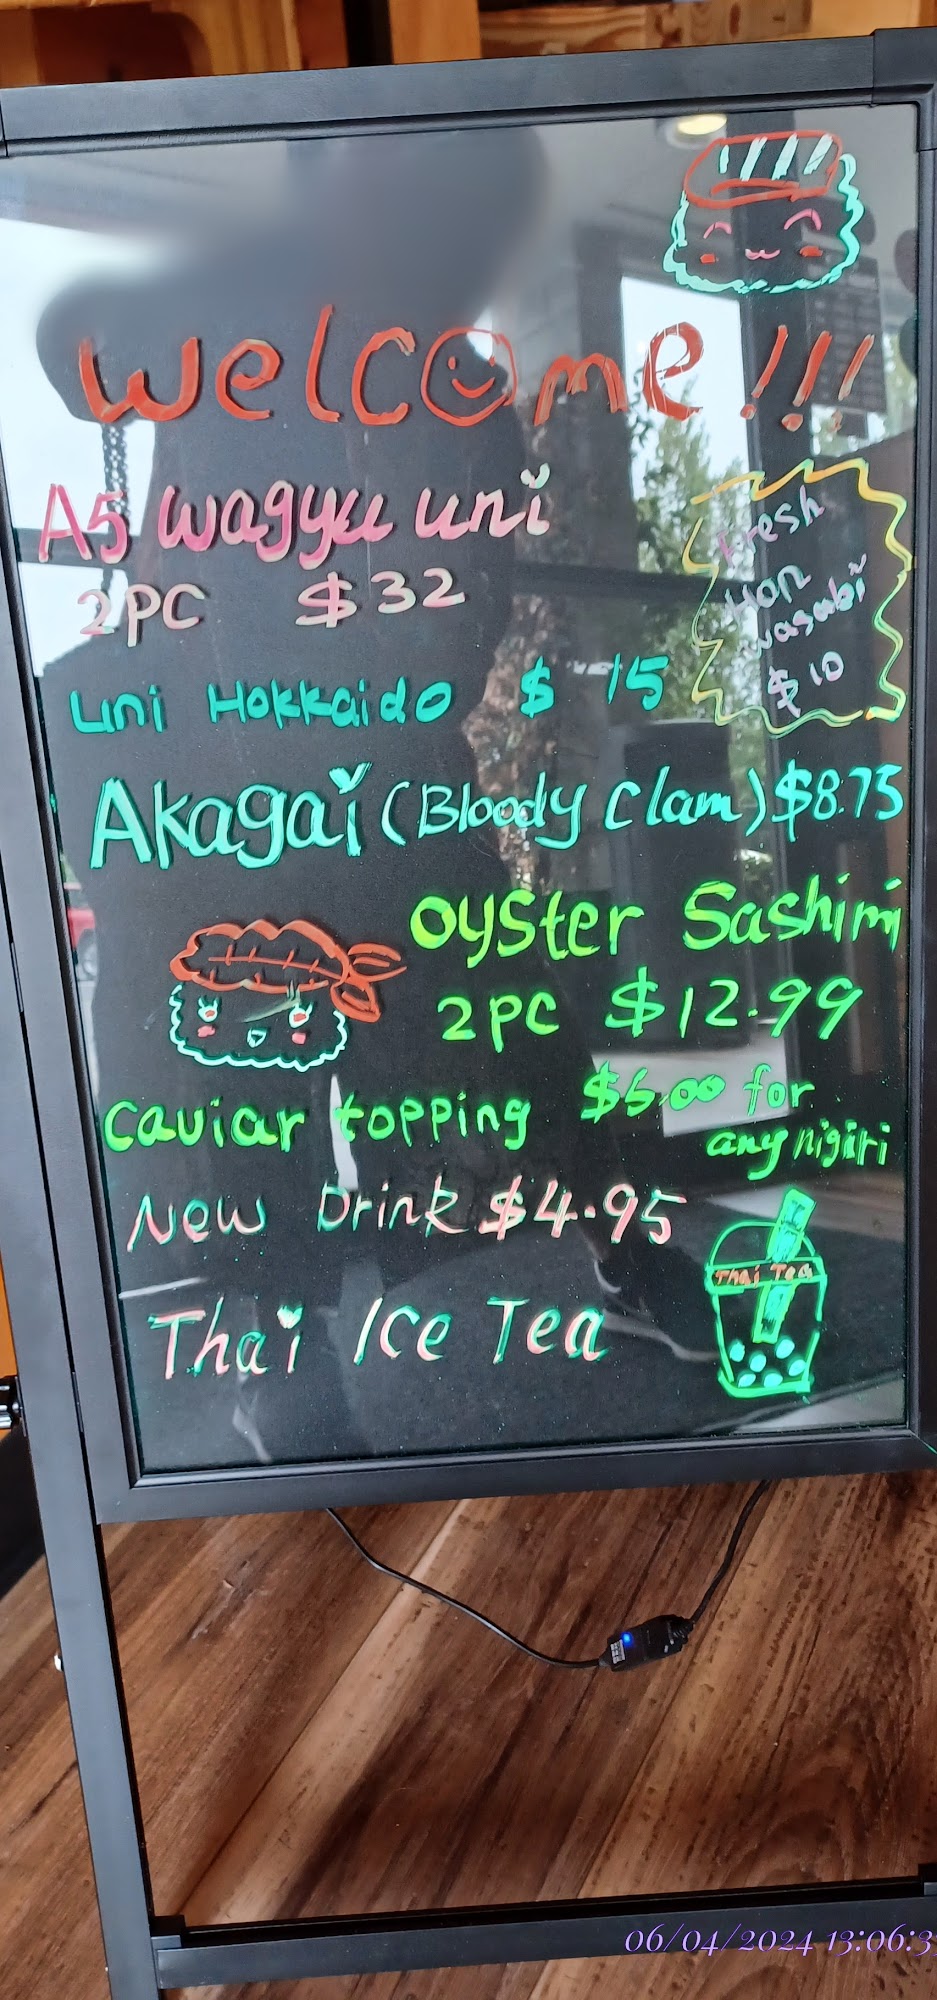 Welcome!!!
A5 Wagyu uni
2PC $32
Fresh
Hon
wasabi
$10
Uni Hokkaido $15
Akagai (Bloody Clam) $8.75
Oyster Sashimi
2PC $12.99
Caviar topping for
any nigiri
New Drink $4.95
Thai Tea
Thai Ice Tea
06/04/2024 13:06:3